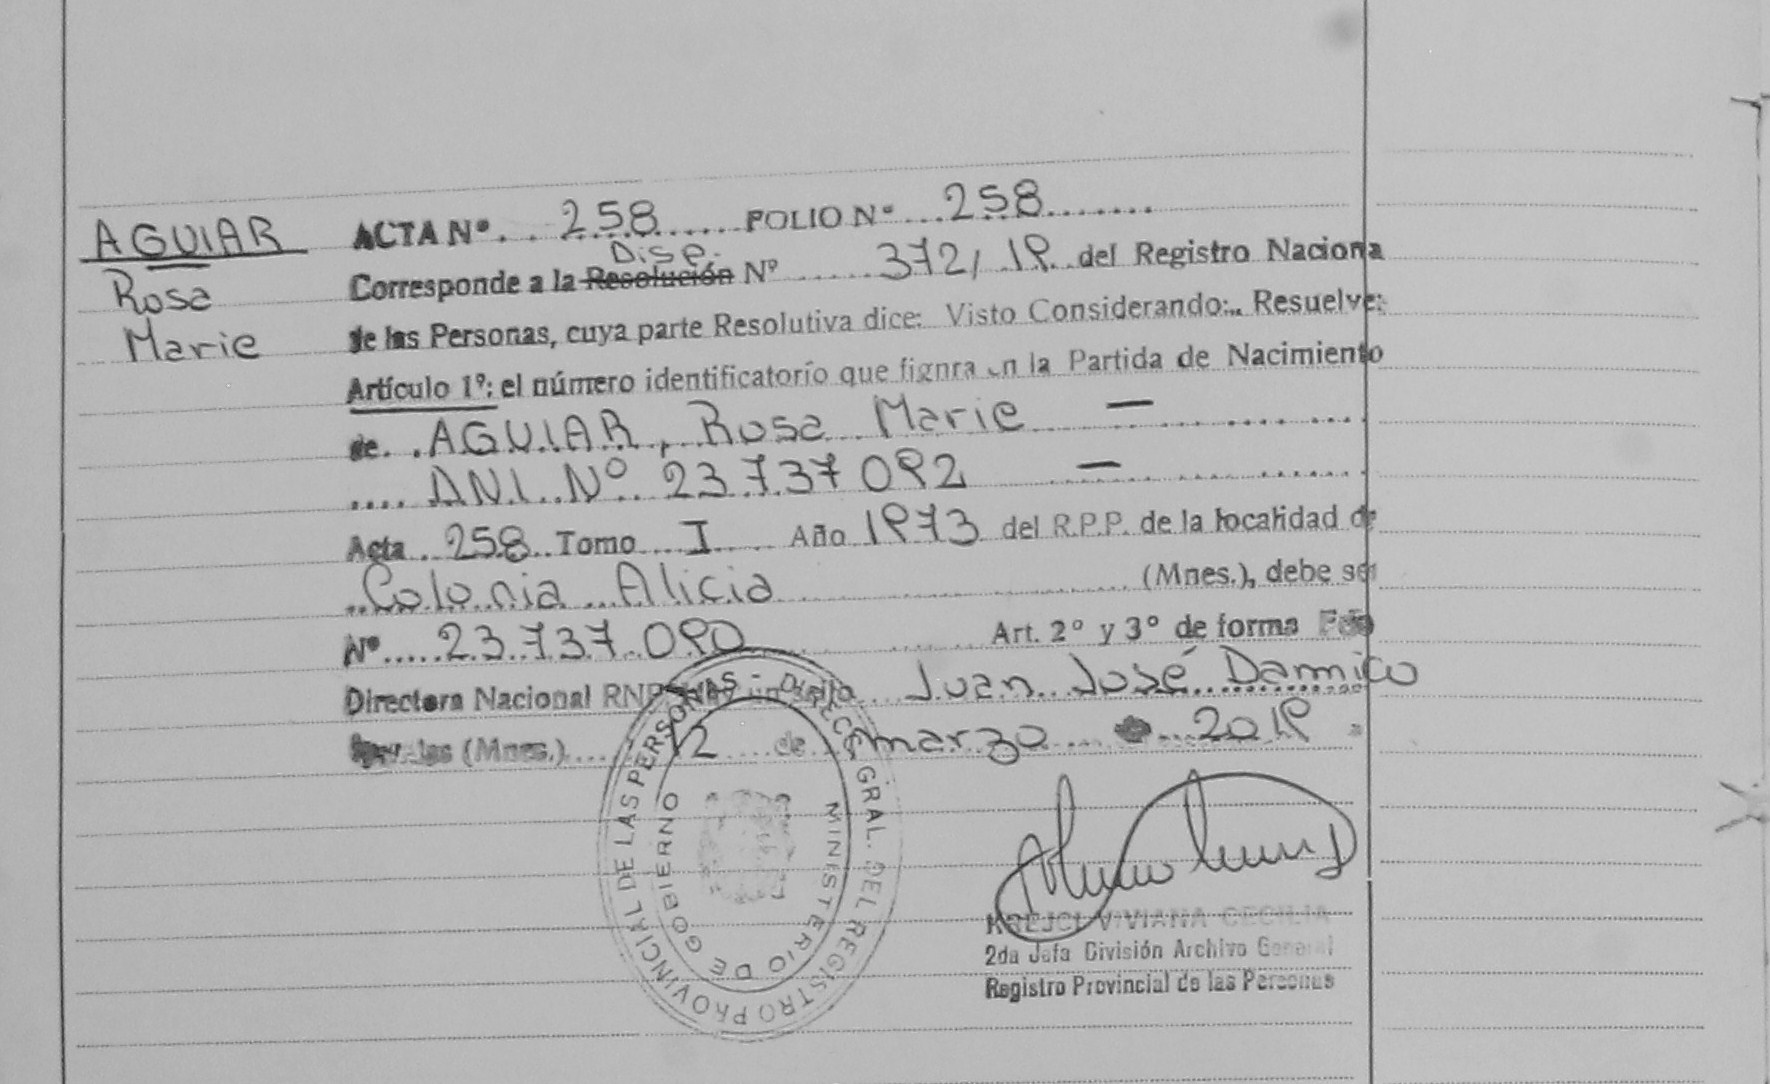 AGUIAR
Rosa
Marie
ACTA Nº 258 FOLIO Nº 258
Disp.
Corresponde a la Resolución Nº 372/19 del Registro Naciona
de las Personas, cuya parte Resolutiva dice: Visto Considerando:.. Resuelve:
Artículo 1º: el número identificatorio que fignra en la Partida de Nacimiento
de AGUIAR, Rosa Marie —
D.N.I. Nº 23.737.092 —
Acta 258 Tomo I Año 1973 del R.P.P. de la localidad de
Colonia Alicia (Mnes.), debe ser
Nº 23.737.090 Art. 2º y 3º de forma Fdo
Directora Nacional RNP Hay un Sello Juan José Damico
(Mnes.) 12 de marzo 2019
REGISTRO PROVINCIAL DE LAS PERSONAS - DIRECC. GRAL. DEL
MINISTERIO DE GOBIERNO
KREJCI VIVIANA CECILIA
2da Jefa División Archivo General
Registro Provincial de las Personas